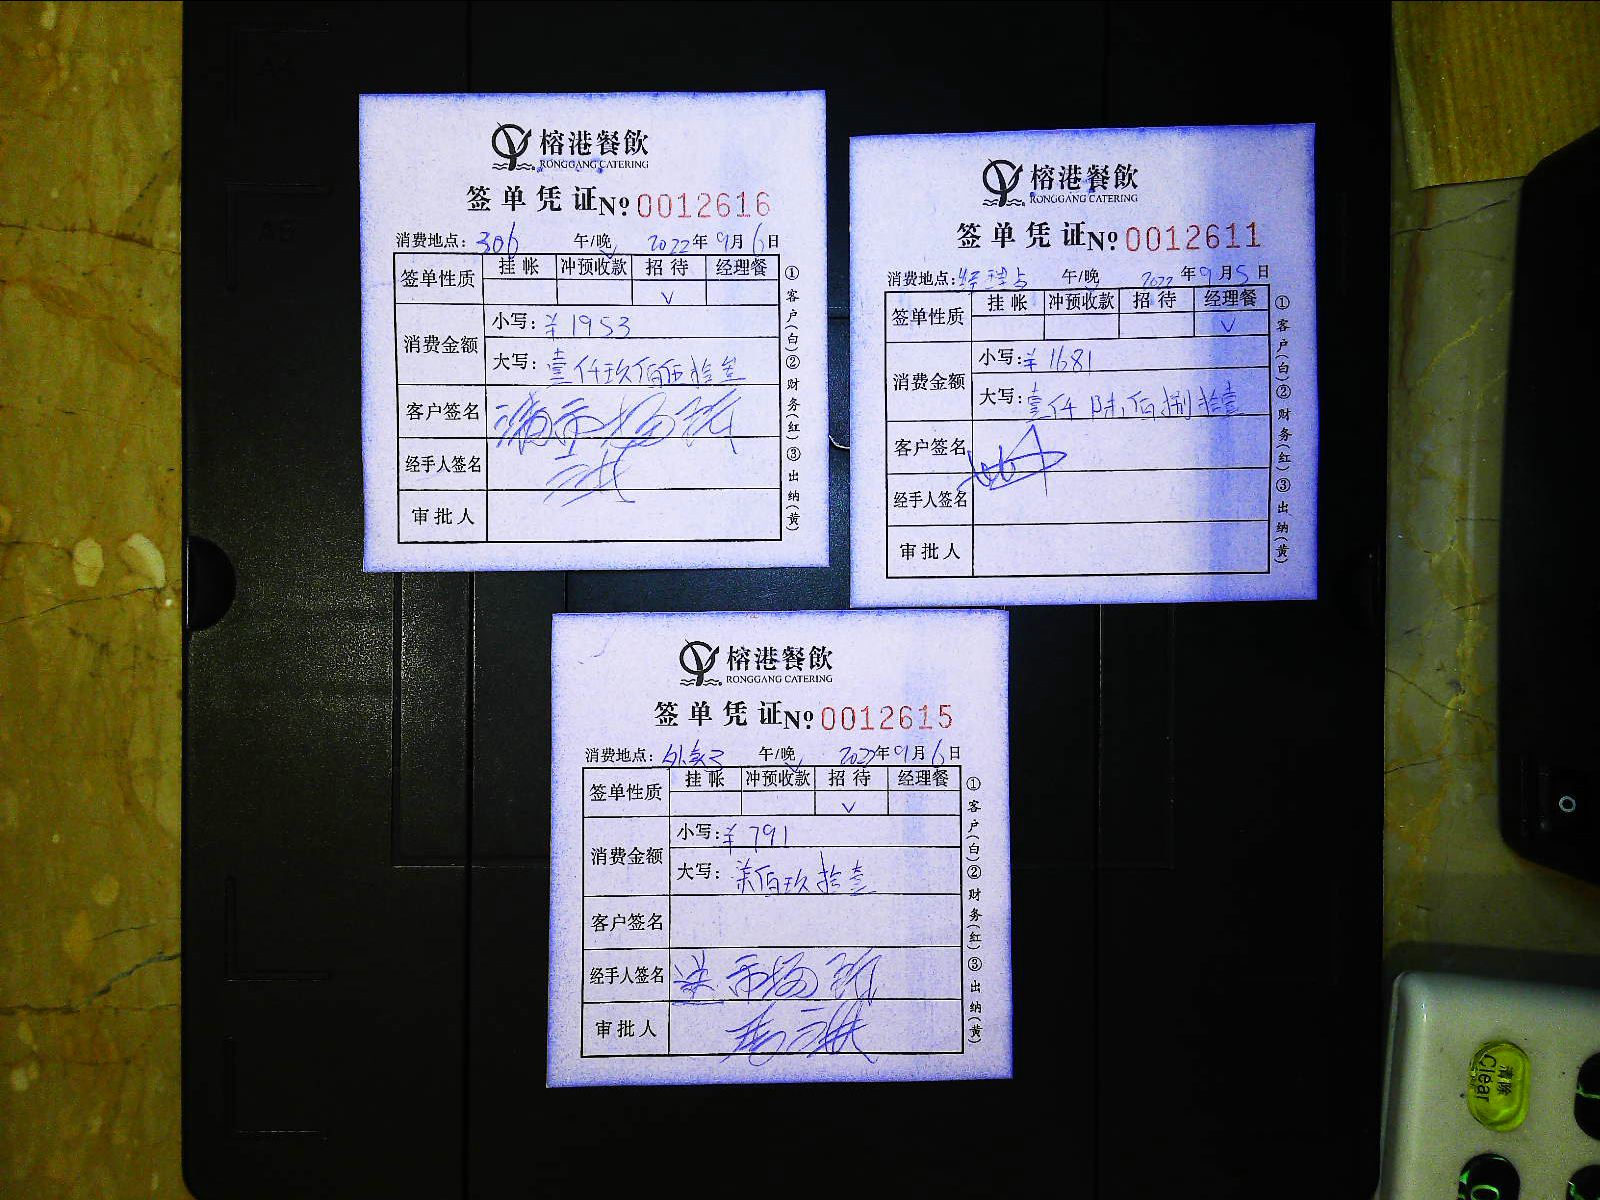 榕港餐飲
RONGGANG CATERING
签单凭证 № 0012616
消费地点: 306 午/晚 2022年9月6日
签单性质 挂帐 冲预收款 招待 经理餐
√
消费金额 小写: ¥1953
大写: 壹仟玖佰伍拾叁
客户签名
经手人签名
审批人
①客户(白)②财务(红)③出纳(黄)
榕港餐飲
RONGGANG CATERING
签单凭证 № 0012611
消费地点: 午/晚 2022年9月5日
签单性质 挂帐 冲预收款 招待 经理餐
√
消费金额 小写: ¥1681
大写: 壹仟陆佰捌拾壹
客户签名
经手人签名
审批人
①客户(白)②财务(红)③出纳(黄)
榕港餐飲
RONGGANG CATERING
签单凭证 № 0012615
消费地点: 午/晚 2022年9月6日
签单性质 挂帐 冲预收款 招待 经理餐
√
消费金额 小写: ¥791
大写: 柒佰玖拾壹
客户签名
经手人签名
审批人
①客户(白)②财务(红)③出纳(黄)
清除
Clear